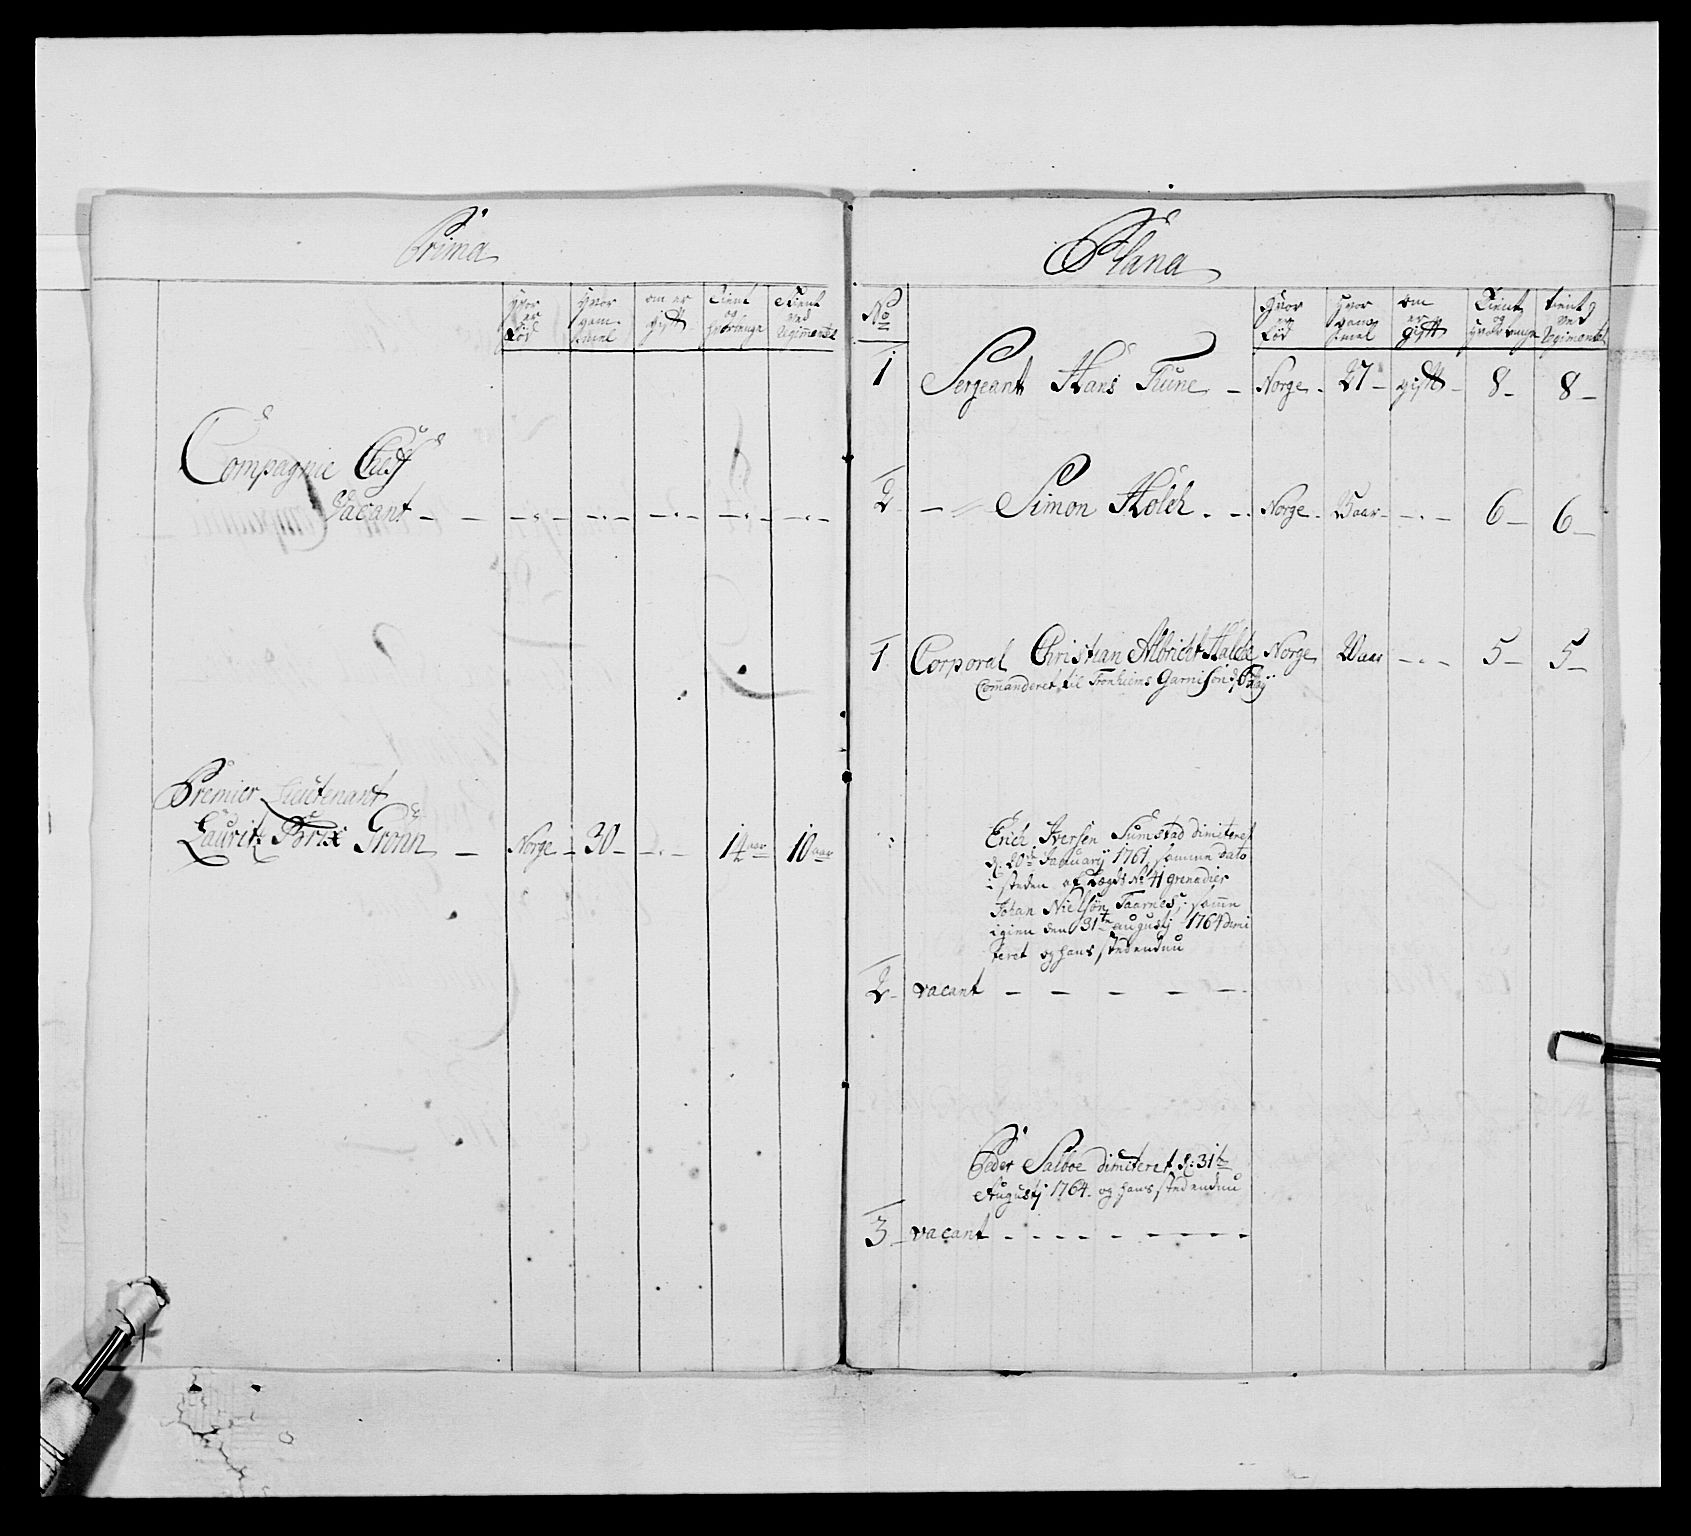 Prima
Hvor er Föd
Hvor gam̅el
om er gift
Tient og hvorlenge
Tient ved Regimentet
Compagnie Chef
Vacant
Premier Lieutenant
Lauritz Grönn Norge 30 14 aar 10 aar
Plana
No
Hvor er Föd
Hvor gam̅el
om er gift
Tient og hvor lenge
tient ved Regimentet
1 Sergeant Hans Tune Norge 27 gift 8 8
2 Simon Holck Norge aar 6 6
1 Corporal Christian Albricht Norge aar 5 5
Com̅anderet til Tronhiems Garnison
Erich Iversen Sumstad dimiteret
d. 20de January 1761, samme dato
i steden af Lægds No 41 grenadier
Johan Nielsön Taarnes, sam̅e
igien den 31te augustj 1764 dimi
teret og hans sted endnu
2 vacant
Peder Salboe dimiteret d: 31te
Augustj 1764. og hans sted endnu
3 vacant